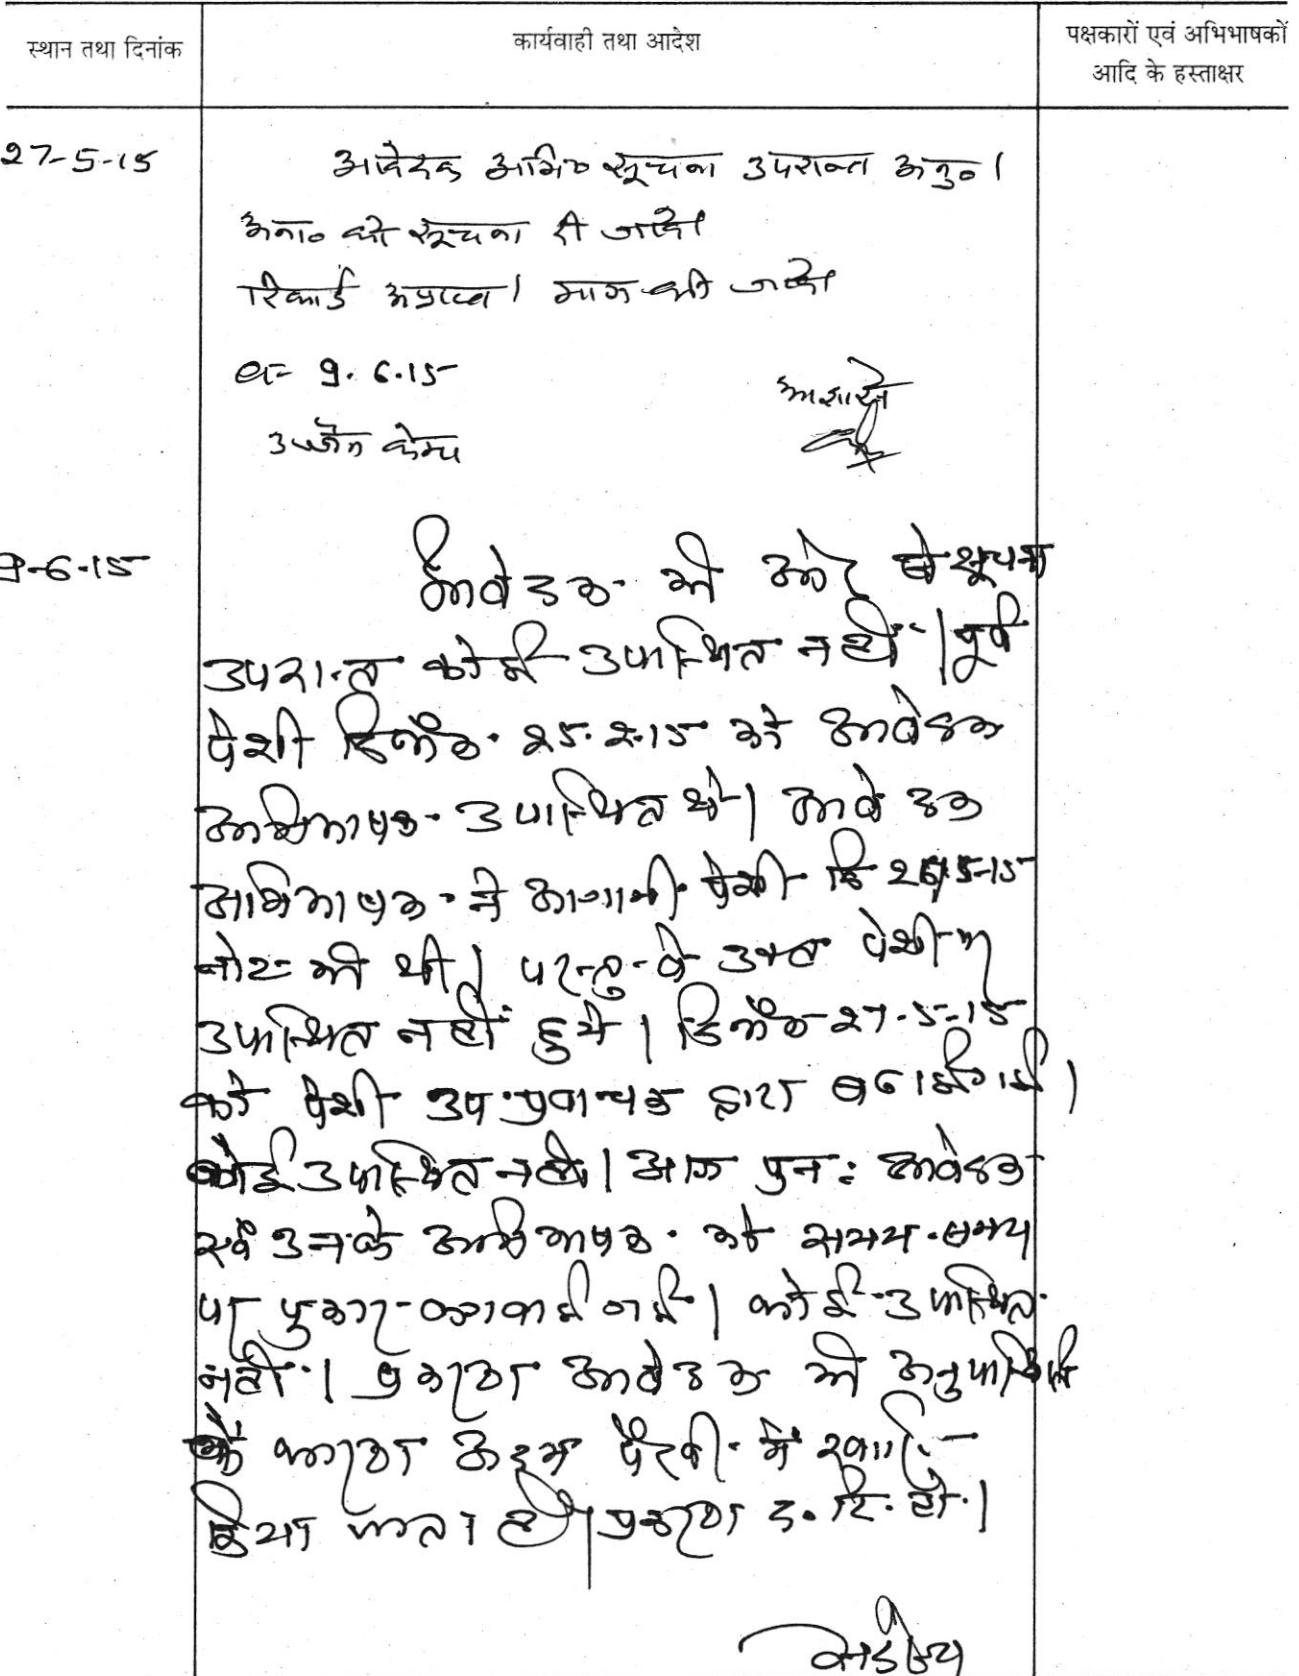 स्थान तथा दिनांक
कार्यवाही तथा आदेश
पक्षकारों एवं अभिभाषकों
आदि के हस्ताक्षर
27-5-15
आवेदक अभि० सूचना उपरान्त अनु०।
अना० को सूचना दी जावे।
रिकार्ड अप्राप्त। मांग की जावे।
9.6.15
उज्जैन केम्प
9-6-15
आवेदक की ओर से सूचना
उपरान्त कोई उपस्थित नहीं। पूर्व
पेशी दिनाँक 25.2.15 को आवेदक
अभिभाषक उपस्थित थे। आवेदक
अभिभाषक ने आगामी पेशी दि
नोट की थी। परन्तु वे उक्त पेशी में
उपस्थित नहीं हुये। दिनाँक 27-5-15
को पेशी उप प्रवाचक द्वारा बढ़ाई गई।
कोई उपस्थित नहीं। आज पुनः आवेदक
एवं उनके अभिभाषक को समय-समय
पर पुकार करवाई गई। कोई उपस्थित
नहीं। प्रकरण आवेदक की अनुपस्थिति
के कारण अदम पैरवी में खारिज
किया जाता है। प्रकरण द. रि. हो।